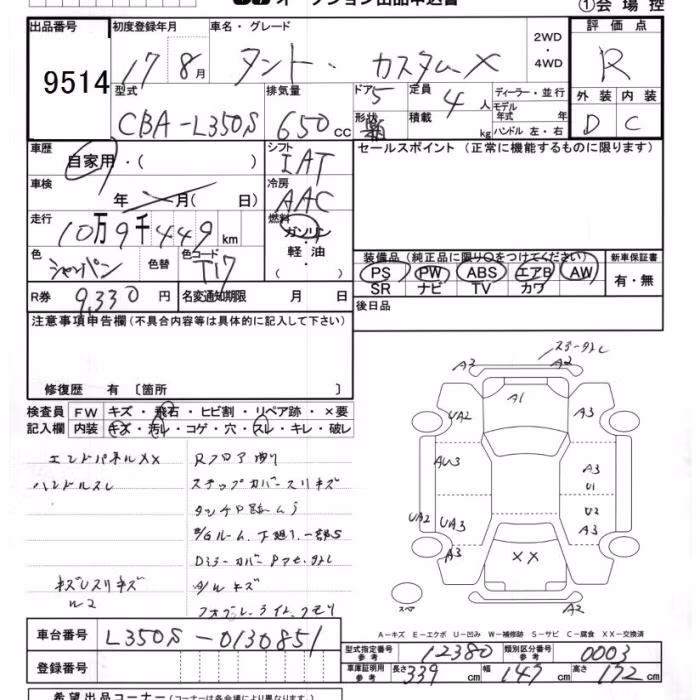 オークション出品申込書 ①会場控
出品番号 初度登録年月 車名・グレード 2WD・4WD 評価点
9514 17 8月 タント・カスタムX R
型式 排気量 ドア 定員 ディーラー・並行 外装 内装
CBA-L350S 650cc 5 4人 モデル年式 年式 D C
形状 積載 kg ハンドル 左・右
車歴 シフト セールスポイント (正常に機能するものに限ります)
自家用・( ) IAT
車検 冷房
年 月( 日) AAC
走行 燃料
10万9千449km ガソリン・軽油( )
色 色替 色コード
シャンパン T17
装備品 (純正品に限り○をつけてください) 新車保証書
PS PW ABS エアB AW 有・無
SR ナビ TV カワ
R券 9,330円 名変通知期限 月 日 後日品
注意事項申告欄 (不具合内容等は具体的に記入して下さい)
修復歴 有 〔箇所 〕
検査員 FW キズ・飛石・ヒビ割・リペア跡・×要
記入欄 内装 キズ・汚レ・コゲ・穴・スレ・キレ・破レ
エンドパネルXX
ハンドルスレ
キズレスリキズ
Rフロア
ステップカバースリキズ
タッチP
Dミラーカバー
A/Wキズ
A2 A2
UA2 A1 A3
AU3 A3
U1
UA2 UA3 U2
A3
A3 XX
スペア A2
A−キズ E−エクボ U−凹み W−補修跡 S−サビ C−腐食 XX−交換済
車台番号 L350S-0130851
型式指定番号 参考 12380 類別区分番号 参考 0003
登録番号 車庫証明用 参考 長さ 339cm 幅 147cm 高さ 172cm
希望出品コーナー (コーナーは各会場により異なります。)